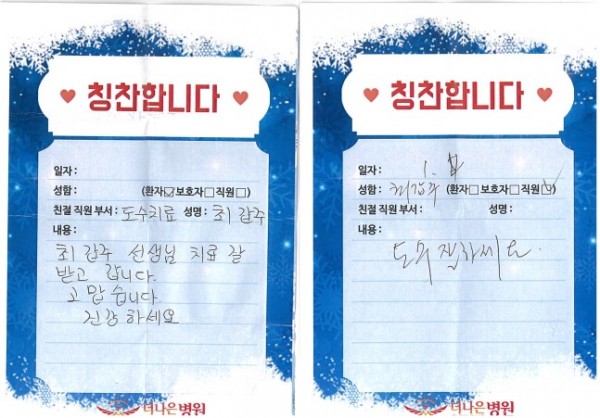 칭찬합니다
일자 :
성함 : (환자☑보호자□직원□)
친절 직원 부서 : 도수치료 성명 : 최갑주
내용 :
최갑주 선생님 치료 잘
받고 갑니다.
고맙습니다.
건강하세요
더나은병원
칭찬합니다
일자 : 1.
성함 : 최갑주 (환자□보호자□직원☑)
친절 직원 부서 : 성명 :
내용 :
도수 잘하세요.
더나은병원